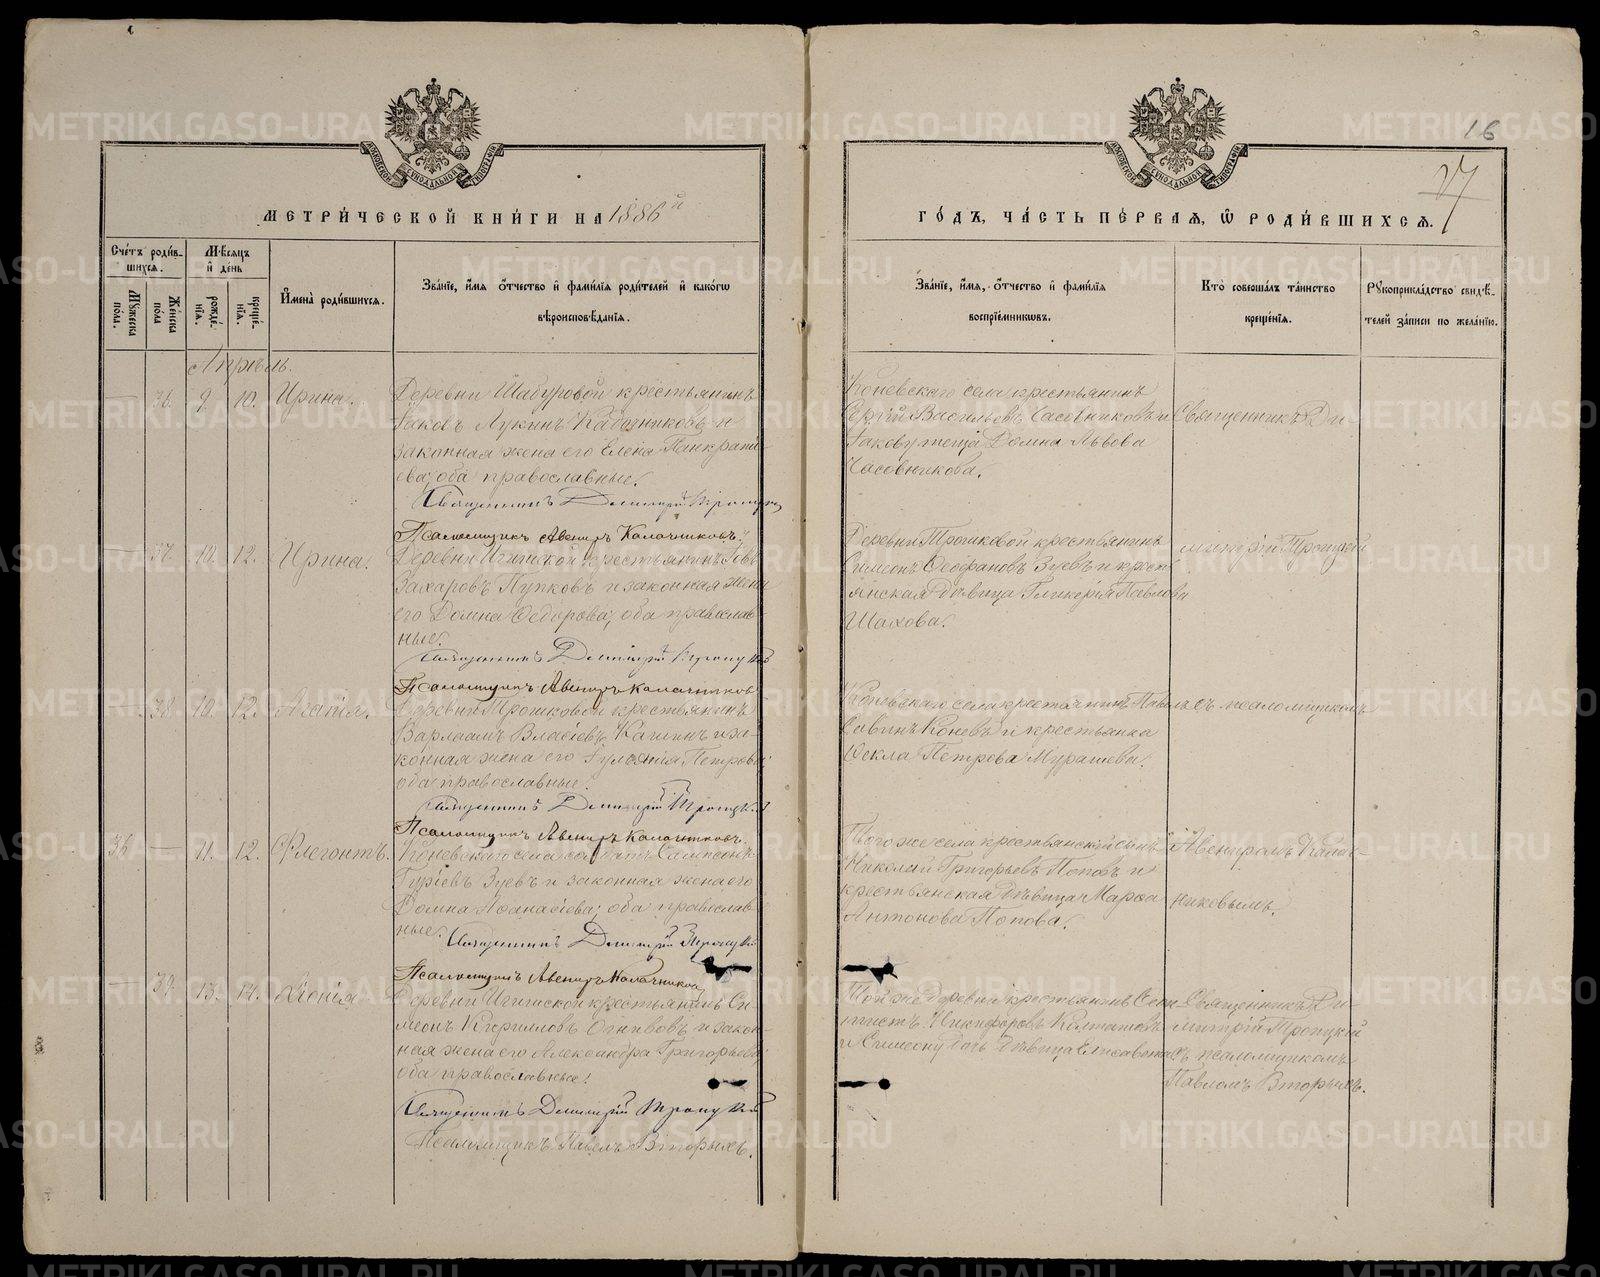 16
27
МЕТРИ́ЧЕСКОЙ КНИ́ГИ НА 1886й
ГО́ДЪ, ЧА́СТЬ ПЕ́РВАЯ, Ѡ РОДИ́ВШИХСѦ.
Сче́тъ роди́в-
шихсѧ.
Мꙋ́жеска
по́ла.
Же́нска
по́ла
Мѣ́сѧцъ
и҆ де́нь
рожде́-
нїѧ.
креще́-
нїѧ.
И҆мена̀ роди́вшихсѧ.
Зва́нїе, и҆́мѧ ѻ҆́тчество и҆ фами́лїѧ роди́телей и҆ како́гѡ
вѣроисповѣ́данїѧ.
Зва́нїе, и҆́мѧ, ѻ҆́тчество и҆ фами́лїѧ
воспрїе́мникѡвъ.
Кто̀ соверша́лъ та́инство
креще́нїѧ.
Рꙋкоприкла́дство свидѣ́-
телей за́писи по жела́нїю.
Апрѣль.
— 36. 9. 10. Ирина.
Деревни Шабуровой крестьянинъ
Іаковъ Лукинъ и
законная жена его Елена Панкрать-
ева; оба православные.
Священникъ Димитрій Троицкій
Псаломщикъ Авениръ Калачниковъ.
Коневскаго села крестьянинъ
Сергій Васильевъ Часовниковъ и
Іакову теща Домна Львова
Часовникова.
Священникъ Ди-
— 37. 10. 12. Ирина.
Деревни крестьянинъ
Захаровъ Пупковъ и законная жена
его Домна Ѳедорова; оба православ-
ные.
Священникъ Димитрій Троицкій
Псаломщикъ Авениръ Калачниковъ
Деревни Трошковой крестьянинъ
Симеонъ Ѳеофановъ Зуевъ и кресть-
янская дѣвица Гликерія Павлова
Шахова.
митрій Троицкій
— 38. 10. 12. Агапія.
Деревни Трошковой крестьянинъ
Варлаамъ Власіевъ и за-
конная жена его Петрова;
оба православные.
Священникъ Димитрій Троицкій
Псаломщикъ Авениръ Калачниковъ.
Коневскаго села крестьянинъ Павелъ
Савинъ Коневъ и крестьянка
Ѳекла Петрова Мурашева.
съ псаломщикомъ
36 — 11. 12. Флегонтъ.
Коневскаго села солдатъ Сампсонъ
Гуріевъ Зуевъ и законная жена его
Домна Аѳанасіева; оба православ-
ные.
Священникъ Димитрій Троицкій
Псаломщикъ Авениръ Калачниковъ
Того же села крестьянскій сынъ
Николай Григорьевъ Поповъ и
крестьянская дѣвица Марѳа
Антонова Попова.
Авениромъ Калач-
никовымъ.
— 39. 13. 14. Хіонія
Деревни крестьянинъ Си-
меонъ Кирилловъ Огнивовъ и закон-
ная жена его Александра Григорьева;
оба православные.
Священникъ Димитрій Троицкій
Псаломщикъ Павелъ Вторыхъ.
Той же деревни крестьянинъ
Никифоровъ
и Симеону дочь дѣвица Елисавета
Священникъ Ди-
митрій Троицкій
съ псаломщикомъ
Павломъ Вторымъ.
METRIKI.GASO-URAL.RU